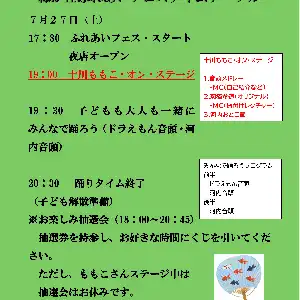 ７月２７日（土）
17：30 ふれあいフェス・スタート
夜店オープン
19：00 十川ももこ・オン・ステージ
十川ももこ オン・ステージ
1.音頭メドレー
・MC(自己紹介など)
3.河内おとこ節
19：30 子どもも大人も一緒に
みんなで踊ろう（ドラえもん音頭・河
内音頭）
前半
ドラえもん音頭
河内音頭
後半
河内音頭
20：30 踊りタイム終了
（子ども解散準備）
※お楽しみ抽選会（18：00～20：45）
抽選券を持参し、お好きな時間にくじを引いてくだ
さい。
ただし、ももこさんステージ中は
抽選会はお休みです。